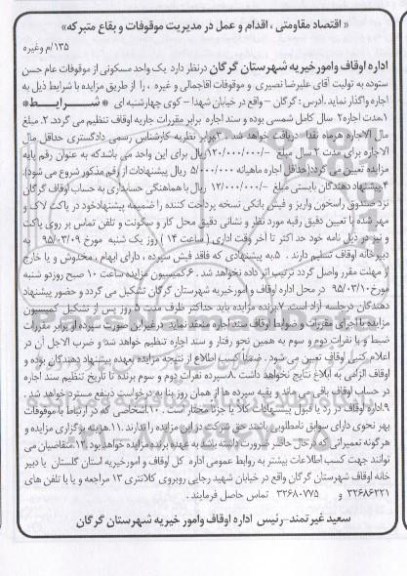 « اقتصاد مقاومتی ، اقدام و عمل در مدیریت موقوفات و بقاع متبرکه»
۱۳۵/م وغیره
اداره اوقاف وامورخیریه شهرستان گرگان درنظر دارد یک واحد مسکونی از موقوفات عام حسن
ستوده به تولیت آقای علیرضا نصیری و موقوفات اقاجمالی و غیره ، را از طریق مزایده با شرایط ذیل به
اجاره واگذار نماید .آدرس : گرگان – واقع در خیابان شهدا – کوی چهارشنبه ای *شرایط*
۱.مدت اجاره ۲ سال کامل شمسی بوده و سند اجاره برابر مقررات جاریه اوقاف تنظیم می گردد ۲. مبلغ
مال الاجاره هرماه نقدا دریافت خواهد شد . ۳.برابر نظریه کارشناس رسمی دادگستری حداقل مال
الاجاره برای مدت ۲سال مبلغ –/۱۲۰/۰۰۰/۰۰۰ریال برای این واحد می باشدکه به عنوان رقم پایه
مزایده تعیین می گردد(حداقل اجاره ماهیانه ۵/۰۰۰/۰۰۰ ریال پیشنهادات از رقم مذکور شروع می شود).
۴.پیشنهاددهندگان بایستی مبلغ –/۱۲/۰۰۰/۰۰۰ ریال با هماهنگی حسابداری به حساب اوقاف گرگان
نزد صندوق واریز و فیش بانکی نسخه پرداخت کننده را ضمیمه پیشنهادخود در پاکت لاک و
مهر شده با تعیین دقیق رقبه مورد نظر و نشانی دقیق محل کار و سکونت و تلفن تماس بر روی پاکت
و نیز در ذیل نامه خود حد اکثر تا آخر وقت اداری ( ساعت ۱۴ ) روز یک شنبه مورخ ۹۵/۰۳/۰۹ به
دبیرخانه اوقاف تنظیم دارند . ۵.به پیشنهادی که فاقد فیش سپرده ، دارای ابهام ، مخدوش و یا خارج
از مهلت مقرر واصل گردد ترتیب اثر داده نخواهد شد . ۶.کمیسیون مزایده ساعت ۱۰ صبح روزدو شنبه
مورخ ۹۵/۰۳/۱۰ در محل اداره اوقاف و امورخیریه شهرستان گرگان تشکیل می گردد و حضور پیشنهاد
دهندگان درجلسه آزاد است .۷.برنده مزایده باید حداکثر ظرف مدت روز پس از تشکیل کمیسیون
مزایده با اجرای مقررات و ضوابط اوقاف سند اجاره منعقد نماید درغیراین صورت سپرده او برابر مقررات
ضبط و با نفرات دوم و سوم به همین نحو رفتار و سند اجاره تنظیم خواهد شد و ضرب الاجل آن در
اعلام کتبی اوقاف تعیین می شود . ضمنا کسب اطلاع از نتیجه مزایده بعهده پیشنهاد دهندگان بوده و
اوقاف الزامی به ابلاغ نتایج نخواهد داشت .۸.سپرده نفرات دوم و سوم برنده تا تاریخ تنظیم سند اجاره
در حساب اوقاف باقی می ماند و بقیه سپرده ها از همان روز بنا به درخواست ذینفع مسترد خواهد شد .
۹.اداره اوقاف در رد یا قبول پیشنهادات کلا یا جزئا مختار است . ۱۰.اشخاصی که در ارتباط با موقوفات
بهر نحوی دارای سوابق نامطلوب باشند حق شرکت در این مزایده را ندارند .۱۱.هزینه برگزاری مزایده و
هر گونه تعمیراتی که درحال حاضر ضرورت داشته باشد به عهده برنده مزایده خواهد بود .۱۲.متقاضیان می
توانند جهت کسب اطلاعات بیشتر به روابط عمومی اداره کل اوقاف و امورخیریه استان گلستان یا دبیر
خانه اوقاف شهرستان گرگان واقع در خیابان شهید رجایی روبروی کلانتری ۱۳ مراجعه و یا با تلفن های
۳۲۶۸۶۲۲۱ و ۳۲۶۸۰۷۷۵ تماس حاصل فرمایند .
سعید غیرتمند–رئیس اداره اوقاف وامور خیریه شهرستان گرگان